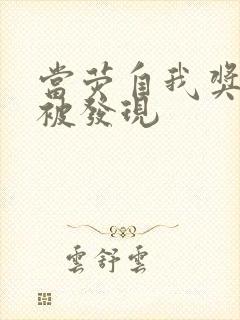 當荧自我獎
被發現
雲舒雲